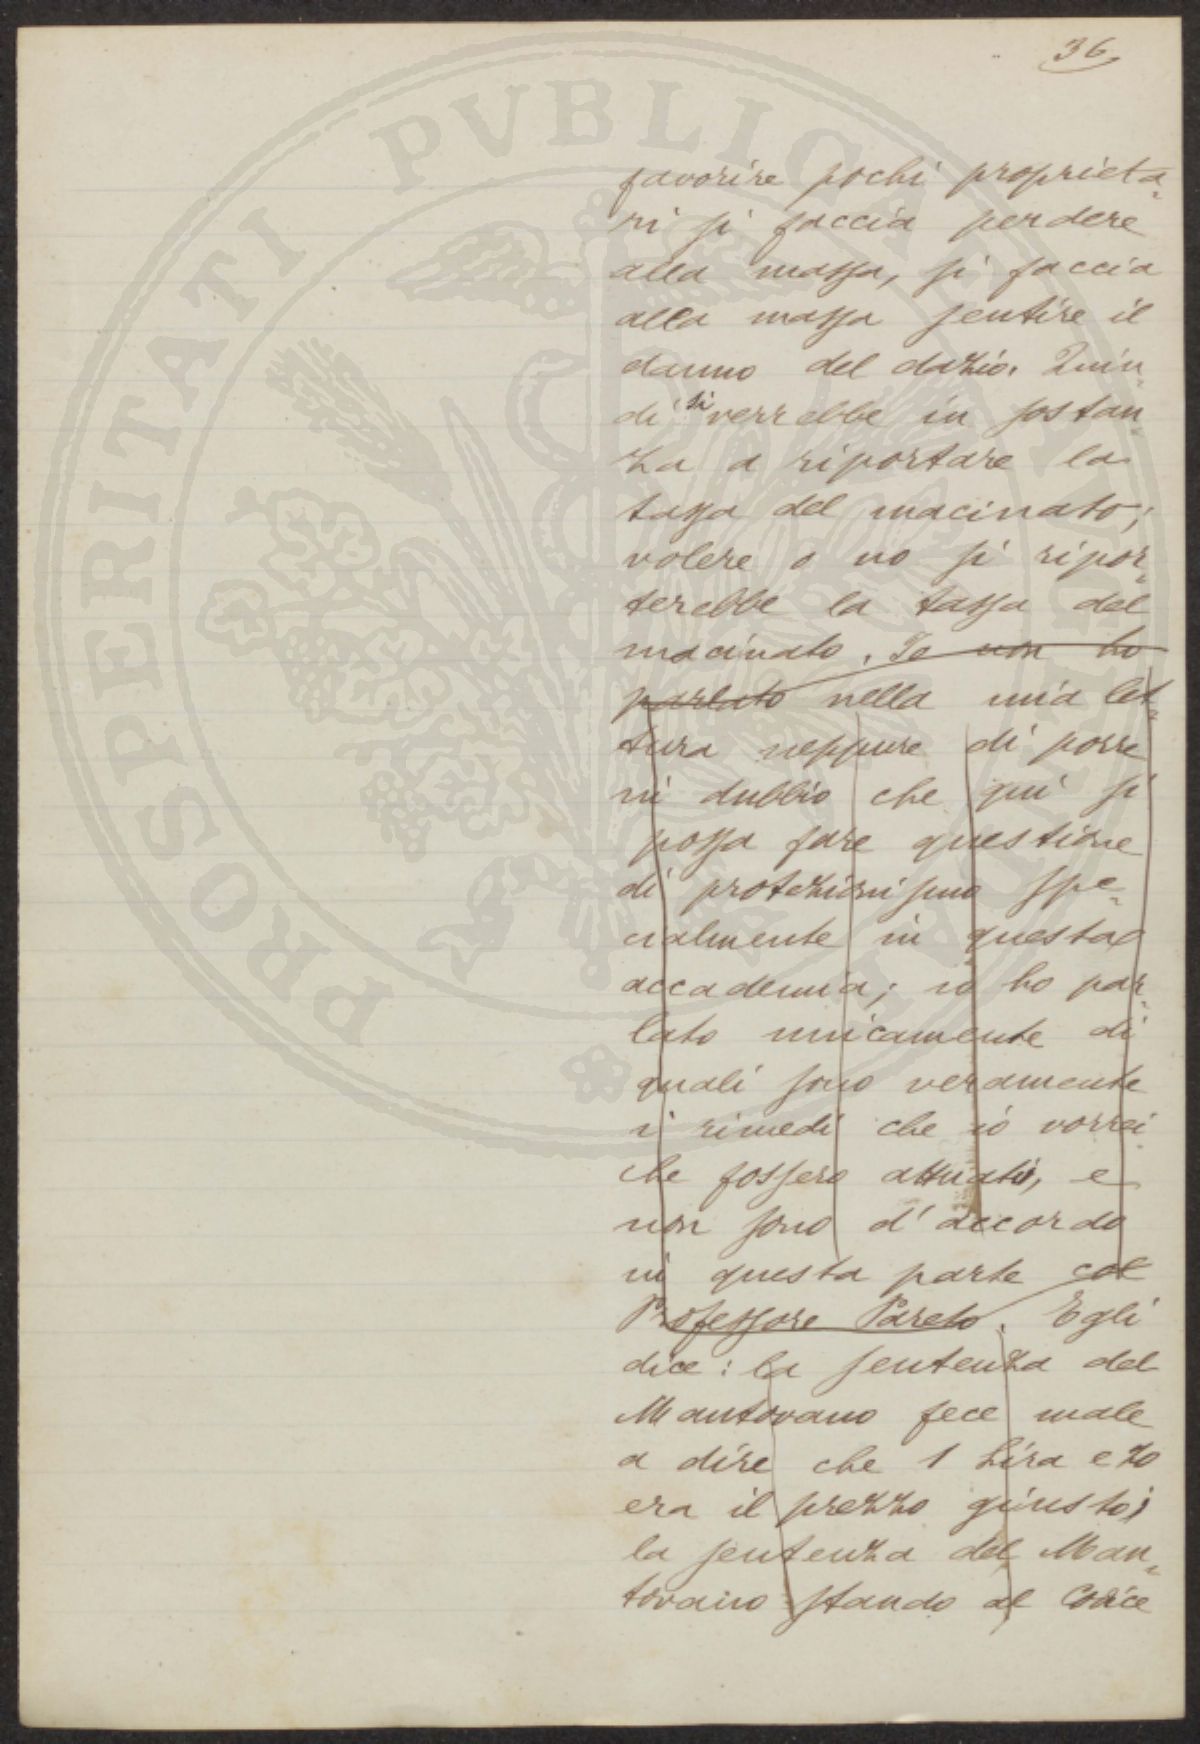 36
favorire pochi proprieta=
ri si faccia perdere
alla massa, si faccia
alla massa sentire il
danno del dazio. Quin=
di si verrebbe in sostan=
za a riportare la
tassa del macinato;
volere o no si ripor=
terebbe la tassa del
macinato. Io non ho
parlato nella mia let=
tura neppure di porre
in dubbio che qui si
possa fare questione
di protezionismo spe=
cialmente in questa
accademia; io ho par=
lato unicamente di
quali sono veramente
i rimedi che io vorrei
che fossero attuati, e
non sono d'accordo
in questa parte col
Professore Pareto. Egli
dice: la sentenza del
Mantovano fece male
a dire che 1 Lira e 20
era il prezzo giusto;
la sentenza del Man=
tovano stando al Codice
PROSPERITATI PVBLICAE AVGENDAE